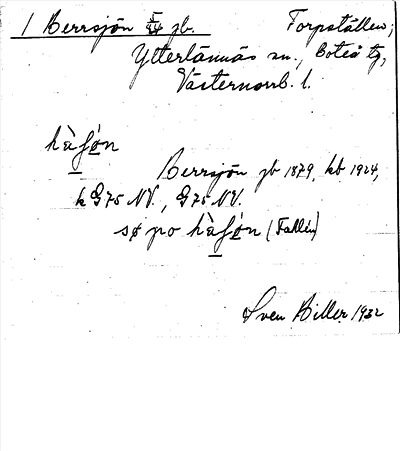 1 Berrsjön jb. Torpställen;
Ytterlännäs sn., Boteå tg,
Västernorrl. l.
Berrsjön jb 1879, kb 1924,
k G75 NV., G75 NV.
sø po (Fallén)
Sven Biller 1932